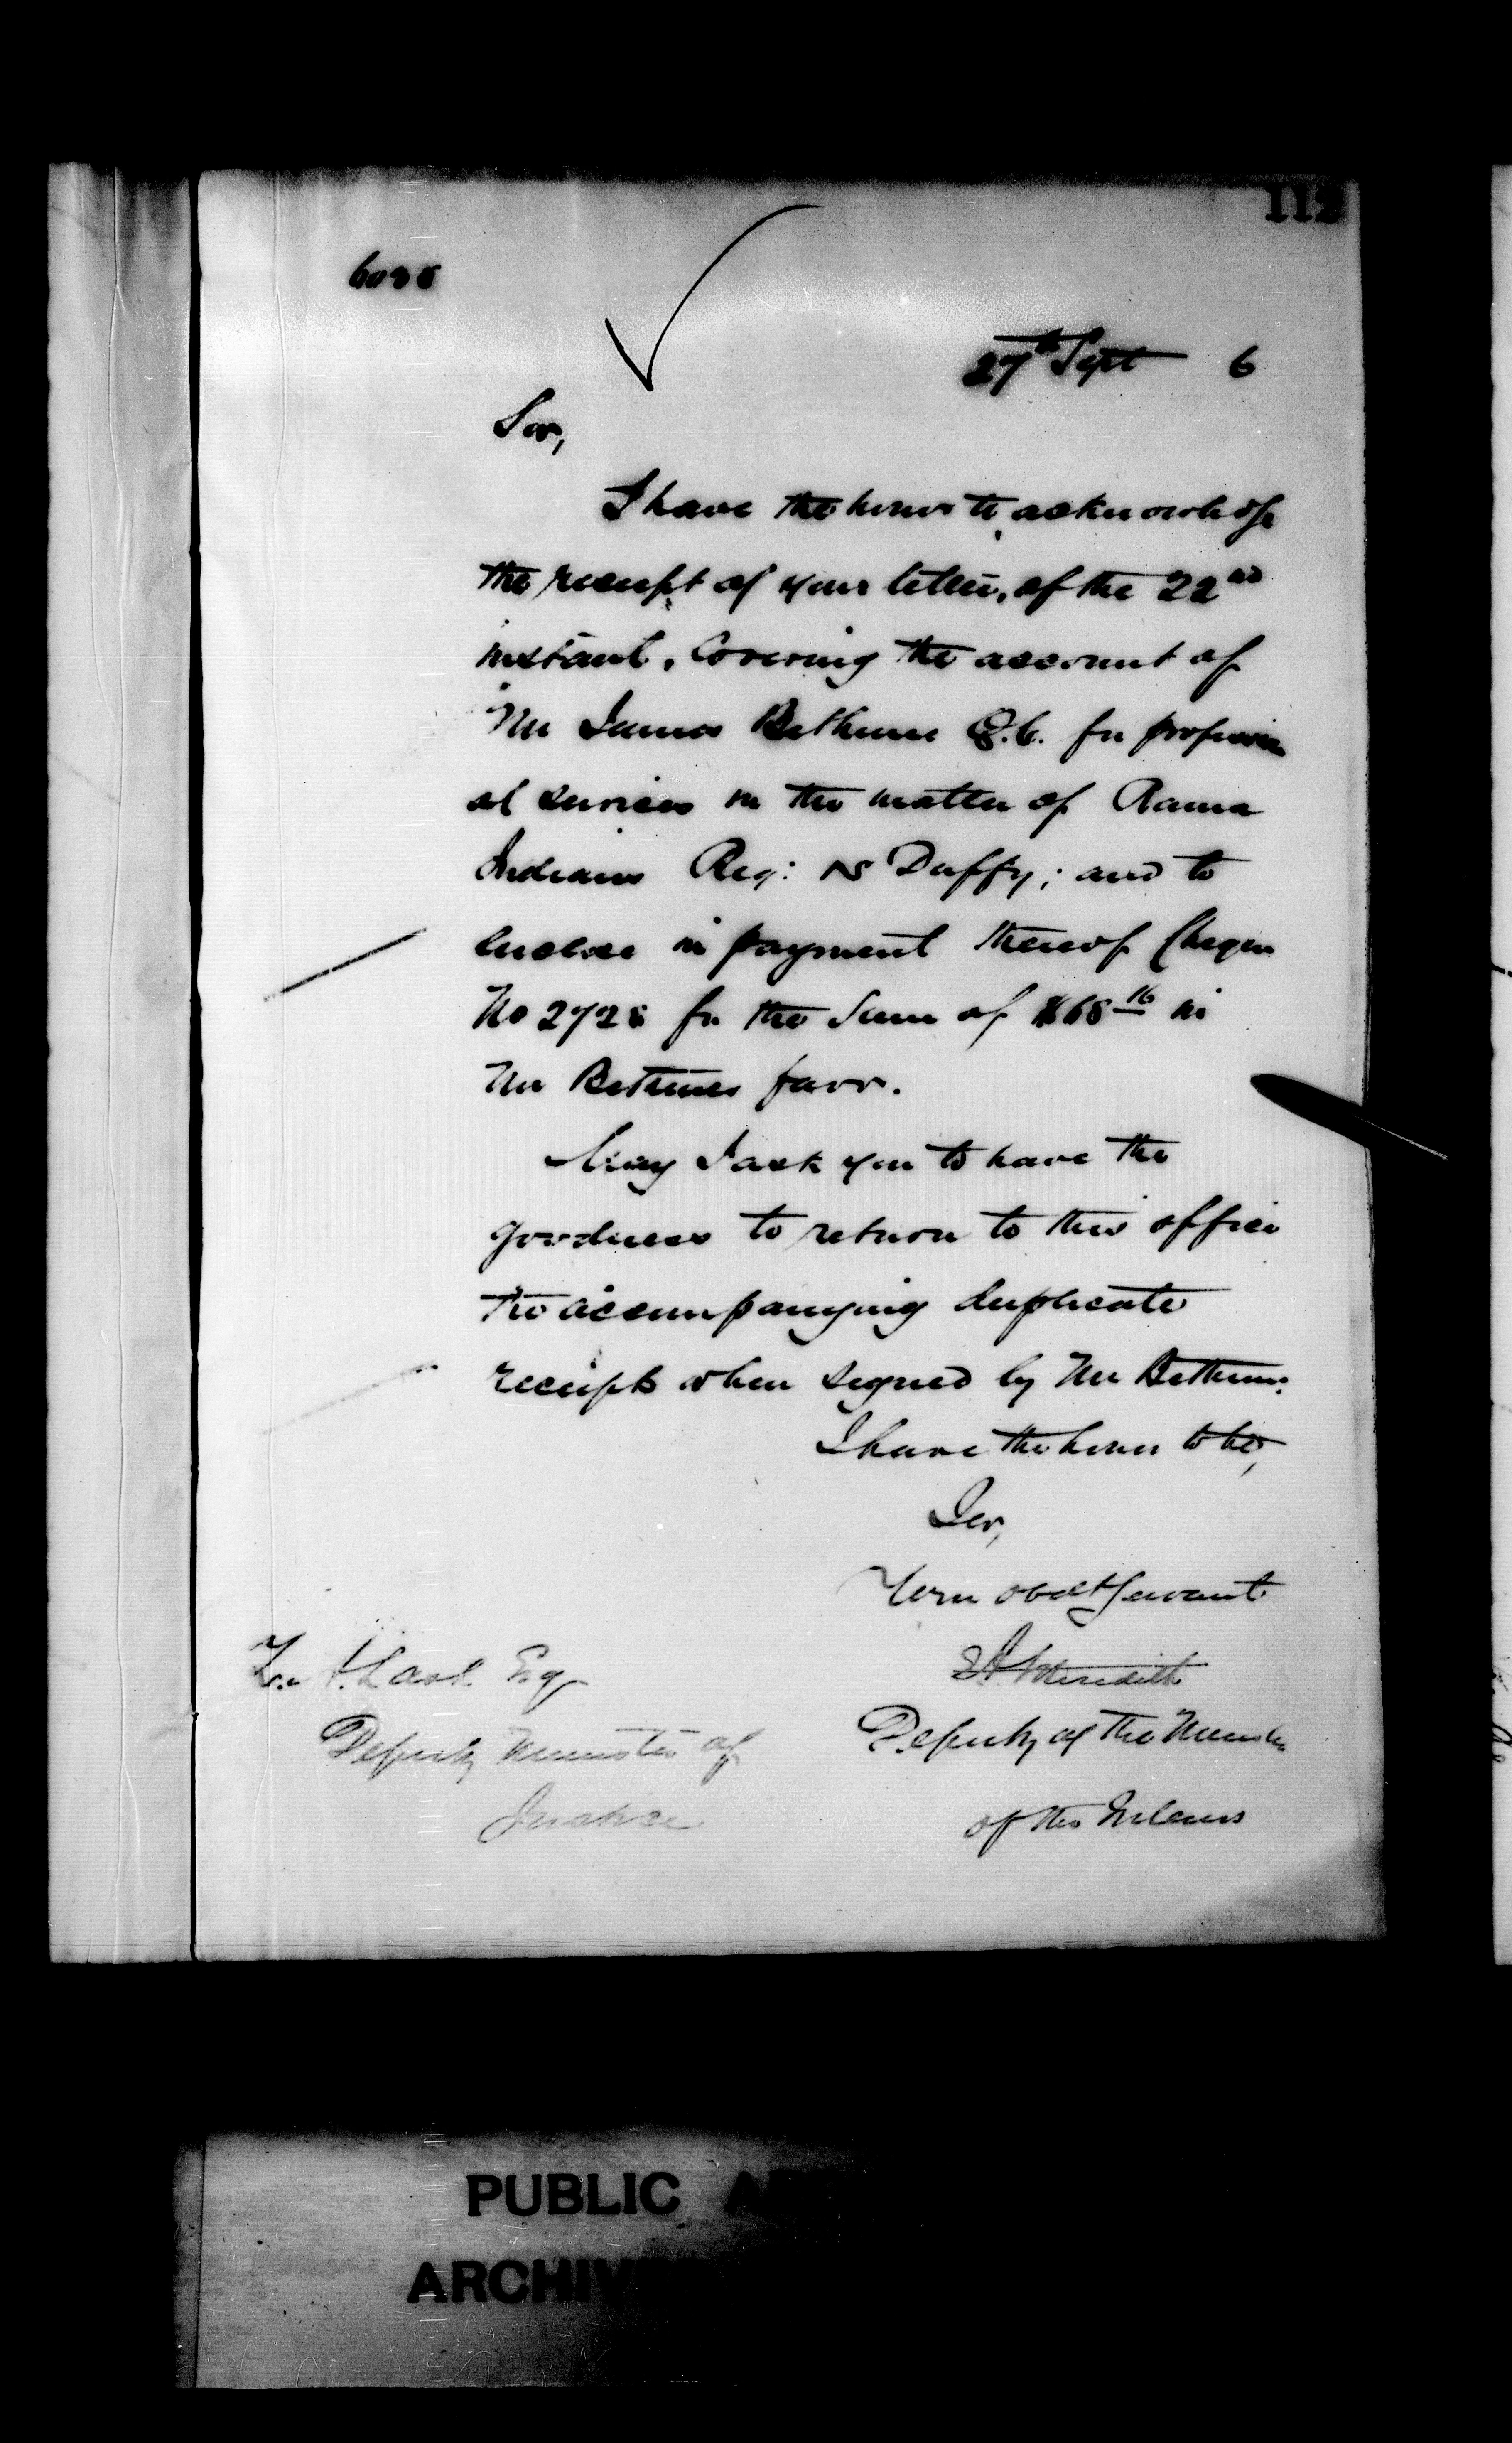 112
27th Sept 6
Sir,
I have the honor to acknowledge
the receipt of your letter, of the 22nd
instant, covering the account of
Mr James Bethune Q.C. for profession
al services in the matter of Rama
Indians Reg: vs Duffy; and to
enclose in payment thereof Cheque
No 2728 for the sum of $68 16 in
Mr Bethunes favor.
May I ask you to have the
goodness to return to this office
the accompanying duplicate
receipts when signed by Mr Bethune.
I have the honor to be,
Sir,
Your obedt servant
Meredith
Z. A. Lash Esq
Deputy of the Minister
Deputy Minister of
Justice
of the Interior
PUBLIC
ARCHIV